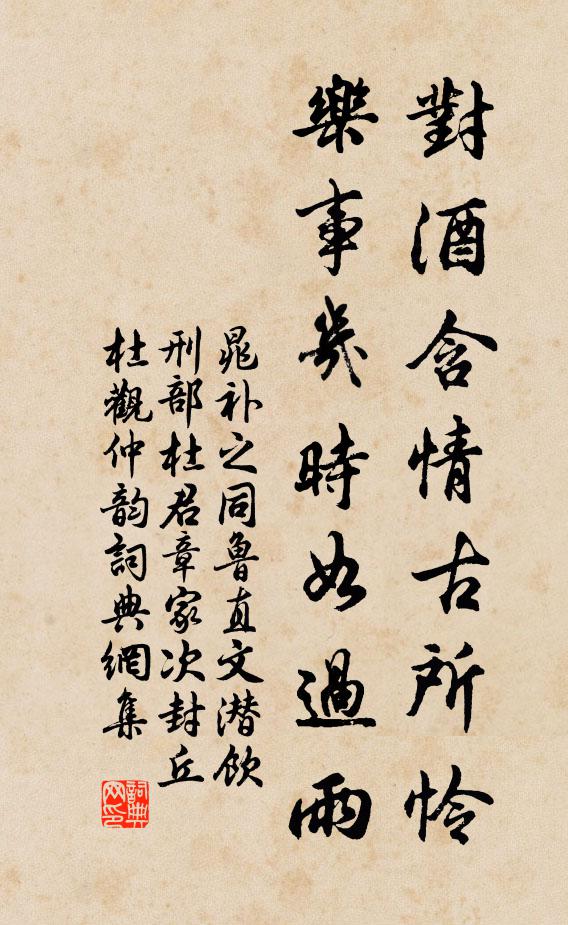 對酒含情古所怜
樂事幾時如過雨
晁补之同魯直文潜飲
刑部杜君章家次封丘
杜觀仲韵詞典網集
詞典网印